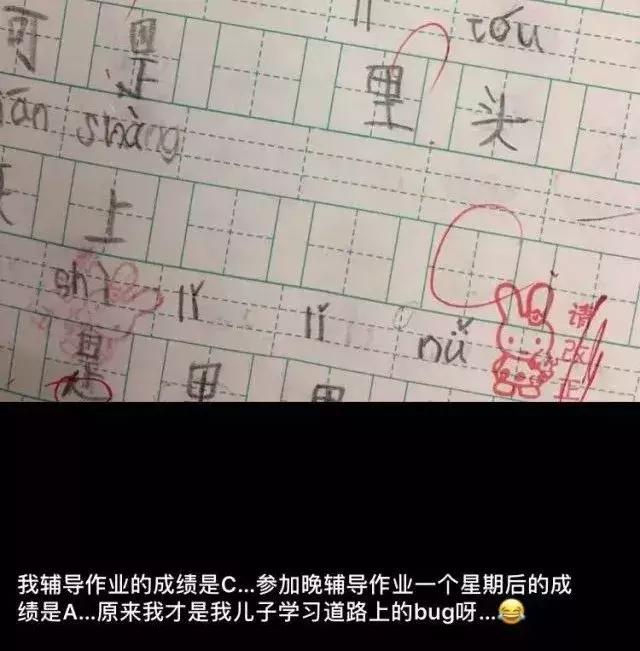 lǐ tóu
可 是 里 头
shàng
上
shì lǐ lǐ nǚ
请改正
是 里 里
我辅导作业的成绩是C...参加晚辅导作业一个星期后的成
绩是A...原来我才是我儿子学习道路上的bug呀...😂